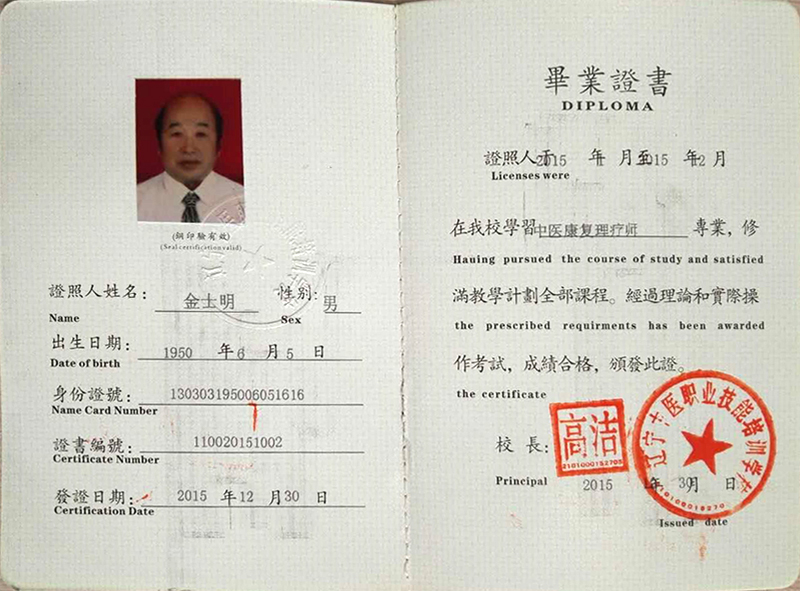 (鋼印驗有效)
(Seal certification valid)
證照人姓名： 金士明 性别： 男
Name Sex
出生日期： 1950 年 6 月 5 日
Date of birth
身份證號： 130303195006051616
Name Card Number
證書編號： 110020151002
Certificate Number
發證日期： 2015 年 12 月 30 日
Certification Date
畢業證書
DIPLOMA
證照人于 2015 年 月至 2015 年 12 月
Licenses were
在我校學習 中医康复理疗师 專業，修
Hauing pursued the course of study and satisfied
滿教學計劃全部課程。經過理論和實際操
the prescribed requirments has been awarded
作考試，成績合格，頒發此證。
the certificate
校長：
高洁
2101000182705
辽宁中医职业技能培训学校
Principal 2015 年 月 30 日
Issued date